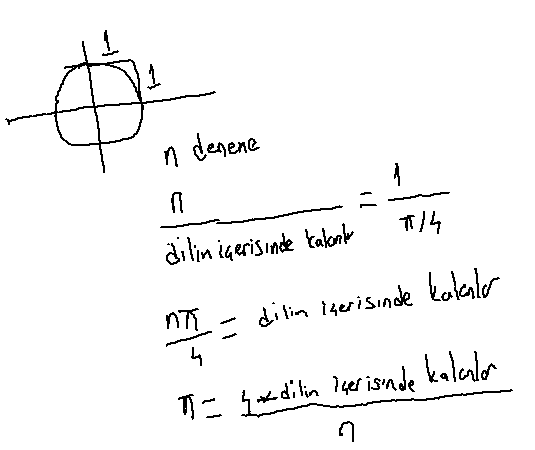 1
1
n deneme
n / dilin içerisinde kalanlar = 1 / π/4
nπ / 4 = dilin içerisinde kalanlar
π = 4*dilin içerisinde kalanlar / n